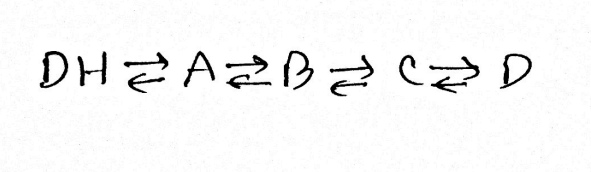 DH ⇄ A ⇄ B ⇄ C ⇄ D